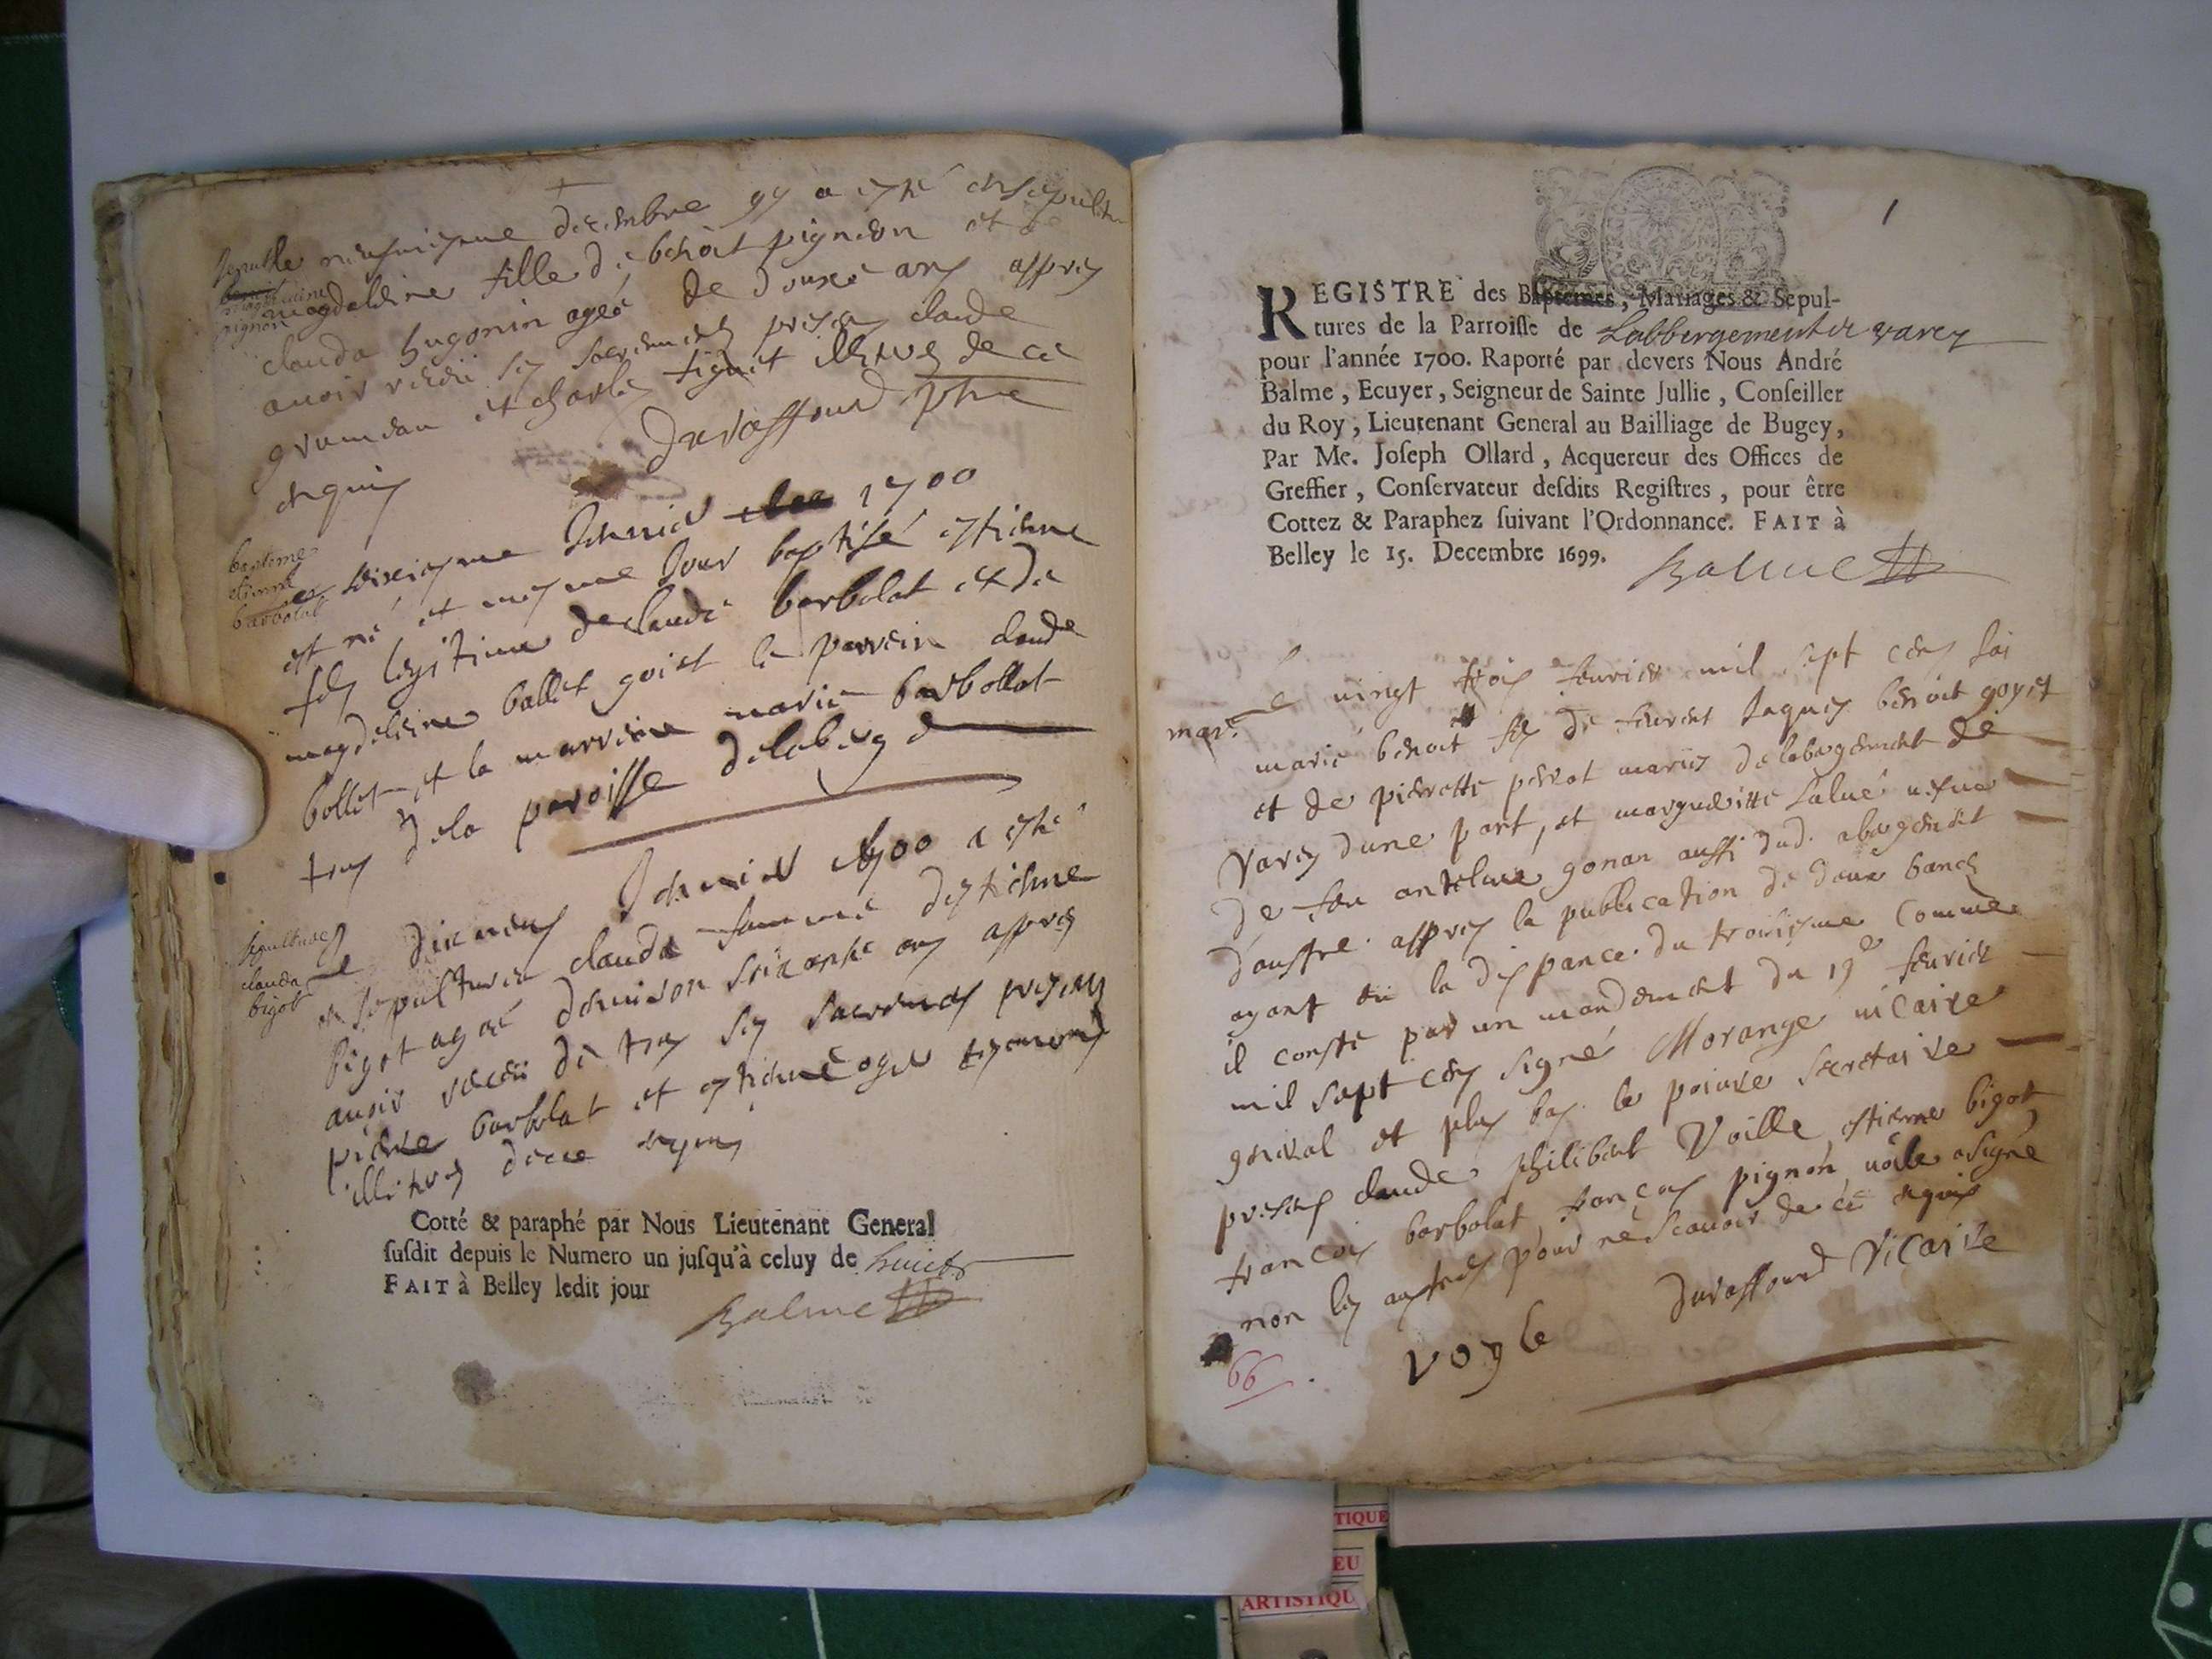 le neufviesme decembre 99 a esté ensepulturé
magdeleine fille de benoit pignion et de
clauda hugonin ageé de douze ans appres
avoir receu ses sacremens presens claude
et charles illitres de ce
enquis
Duraffourd ptre
Sepult
magdelaine
pignon
bapteme
etienne
barbolat
Le seiziesme Janvier 1700
est né et mesme Jour baptisé estienne
fils legitime de claude barbolat et de
magdeleine ballet le parrein claude
bollet et la marreine marie barbollat
tous dela paroisse
sepulture
clauda
bigot
Le dixneuf Janvier 1700 a esté
ensepulturée clauda femme d'estienne
bigot ageé denviron seixante ans appres
avoir receu de tous ses sacremens presens
pierre barbolat et estienne oger tesmoins
illitres de ce
Cotté & paraphé par Nous Lieutenant General
susdit depuis le Numero un jusqu'à celuy de huict
FAIT à Belley ledit jour
Balme
1
REGISTRE des Baptemes, Mariages & Sepul-
tures de la Parroisse de Labbergement de varey
pour l'année 1700. Raporté par devers Nous André
Balme, Ecuyer, Seigneur de Sainte Jullie, Conseiller
du Roy, Lieutenant General au Bailliage de Bugey,
Par Me. Joseph Ollard, Acquereur des Offices de
Greffier, Conservateur desdits Registres, pour être
Cottez & Paraphez suivant l'Ordonnance. FAIT à
Belley le 15. Decembre 1699.
Balme
mar.
Le vingt trois feuvrier mil sept cens
marié benoit fils de Jaques benoit goyet
et de pierrette perrot mariés de labergement de
Varey dune part, et margueritte
de feu gonan aussi dud. abergement
d'autre. appres la publication de deux bancs
ayant eu la dispance du troisiesme comme
il conste par un mandement du 19e feuvrier
mil sept cens signé Morange vicaire
general et plus bas le poivre secretaire
presens claude philibert Voille estienne bigot
francois barbolat, francois pignon voile a signé
non les autres pour ne scavoir de ce enquis
Duraffourd Vicaire
voyle
66
TIQUE
EU
ARTISTIQU